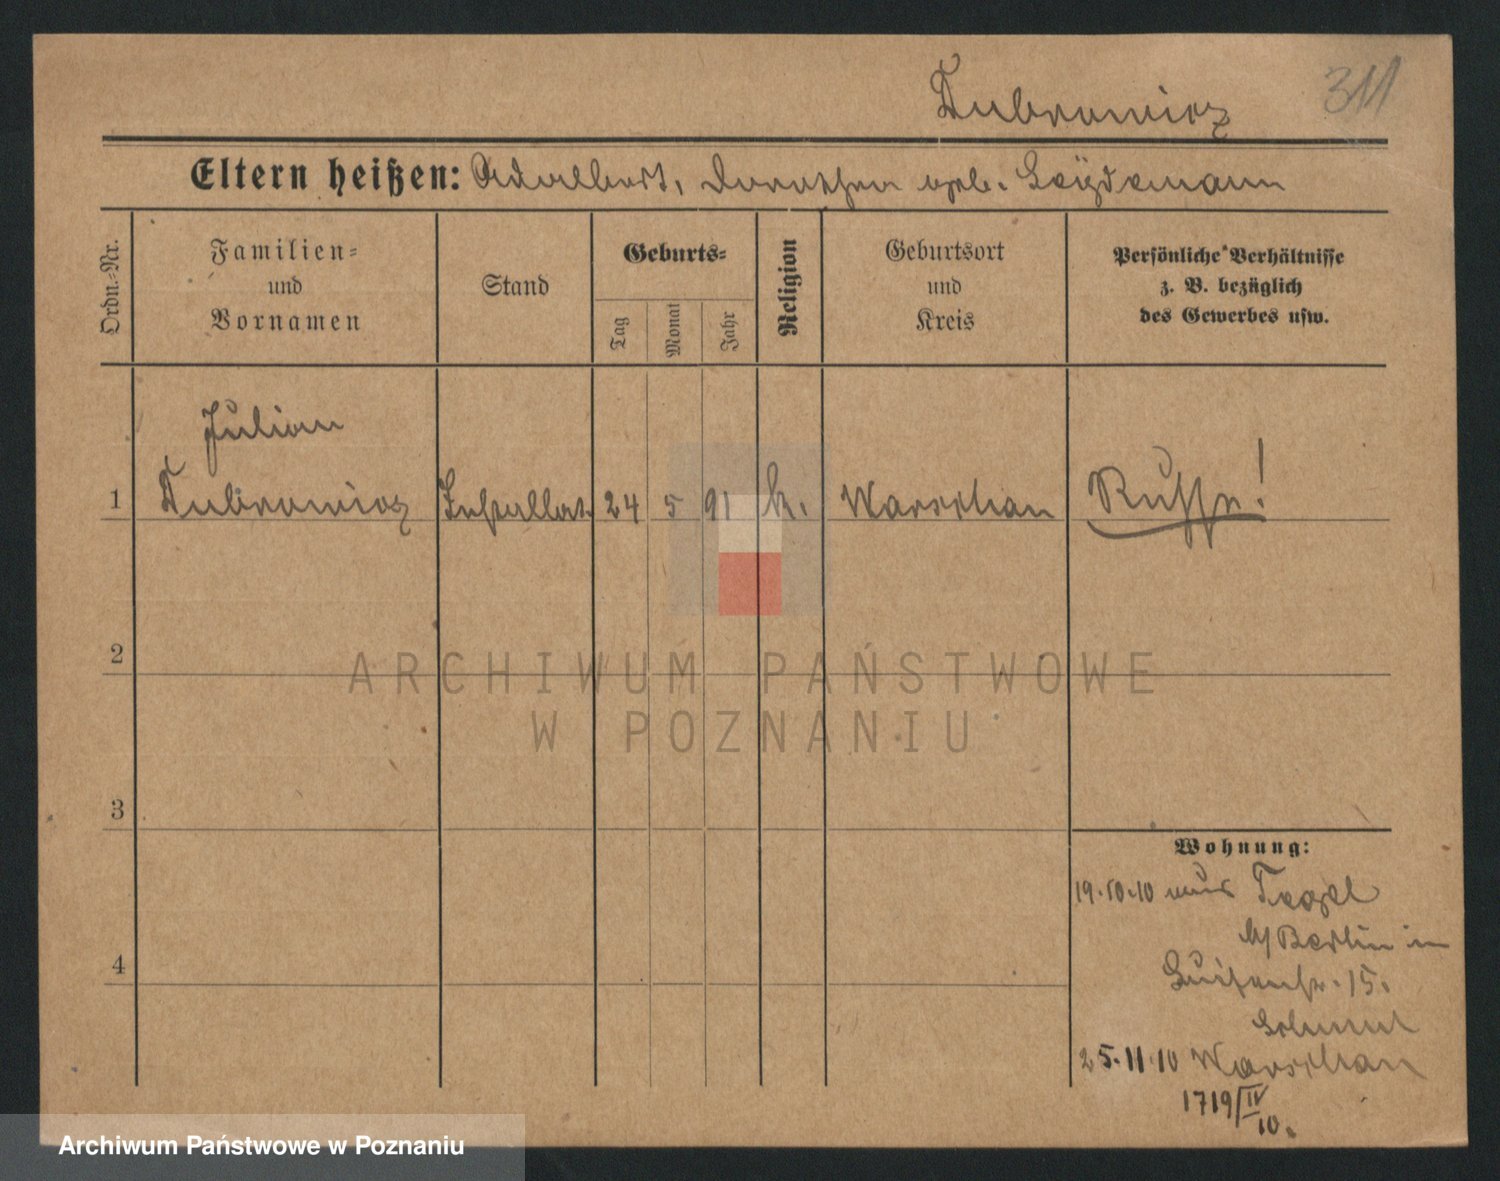 Dubrowicz 311
Eltern heißen: Adalbert, Dorothea geb.
Ordn.-Nr.
Familien-
und
Vornamen
Stand
Geburts-
Tag
Monat
Jahr
Religion
Geburtsort
und
Kreis
Persönliche Verhältnisse
z. B. bezüglich
des Gewerbes usw.
Julian
1 Dubrowicz Installat. 24 5 91 k. Warschau Russe!
2
ARCHIWUM PAŃSTWOWE
W POZNANIU
3
Wohnung:
19.10.10 aus Tegel
b/Berlin in
4
Luisenstr. 15.
25.11.10 Warschau
1719/IV
10.
Archiwum Państwowe w Poznaniu